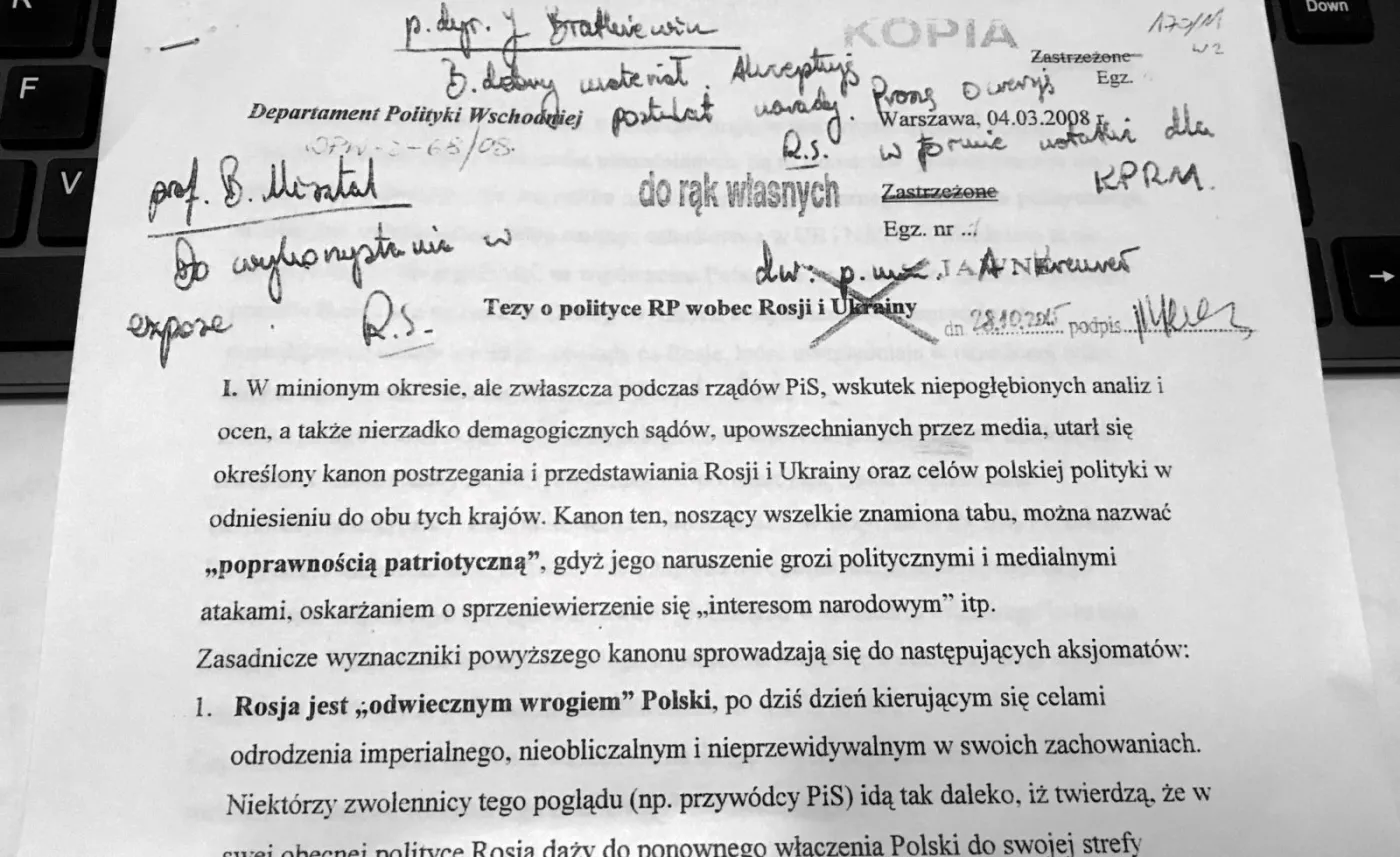 F
V
Down
→
p. dyr. J Bratkiewicz
KOPIA
Zastrzeżone
Egz.
B. dobry materiał. Akceptuję
postulat narady. Proszę o wersję
w formie notatki dla
KPRM.
R.S.
Departament Polityki Wschodniej
Warszawa, 04.03.2008 r.
do rąk własnych
Zastrzeżone
Egz. nr
prof. B. Misztal
Do wykorzystania w
expose.
R.S.
JAWNE
dn. 28.10.2015 podpis
Tezy o polityce RP wobec Rosji i Ukrainy
I. W minionym okresie, ale zwłaszcza podczas rządów PiS, wskutek niepogłębionych analiz i
ocen, a także nierzadko demagogicznych sądów, upowszechnianych przez media, utarł się
określony kanon postrzegania i przedstawiania Rosji i Ukrainy oraz celów polskiej polityki w
odniesieniu do obu tych krajów. Kanon ten, noszący wszelkie znamiona tabu, można nazwać
„poprawnością patriotyczną”, gdyż jego naruszenie grozi politycznymi i medialnymi
atakami, oskarżaniem o sprzeniewierzenie się „interesom narodowym” itp.
Zasadnicze wyznaczniki powyższego kanonu sprowadzają się do następujących aksjomatów:
1. Rosja jest „odwiecznym wrogiem” Polski, po dziś dzień kierującym się celami
odrodzenia imperialnego, nieobliczalnym i nieprzewidywalnym w swoich zachowaniach.
Niektórzy zwolennicy tego poglądu (np. przywódcy PiS) idą tak daleko, iż twierdzą, że w
swej obecnej polityce Rosja dąży do ponownego włączenia Polski do swojej strefy